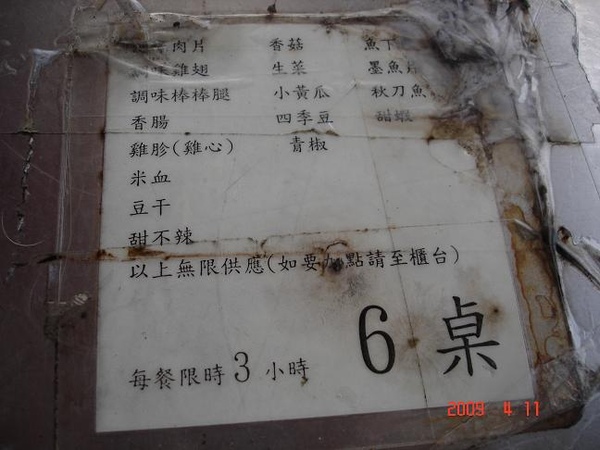 肉片 香菇 魚下
雞翅 生菜 墨魚
調味棒棒腿 小黃瓜 秋刀魚
香腸 四季豆 甜蝦
雞胗(雞心) 青椒
米血
豆干
甜不辣
以上無限供應(如要 點請至櫃台)
6桌
每餐限時3小時
2009 4 11